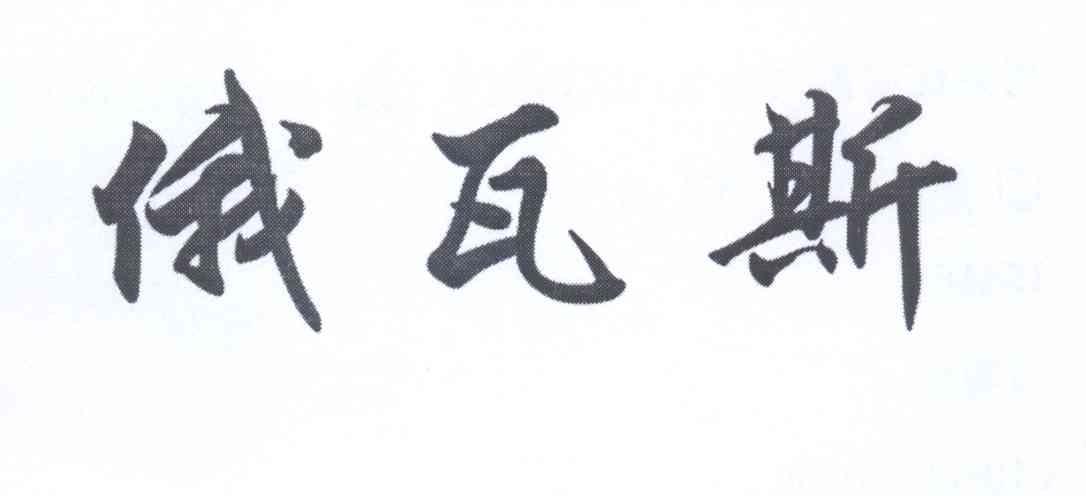 俄瓦斯